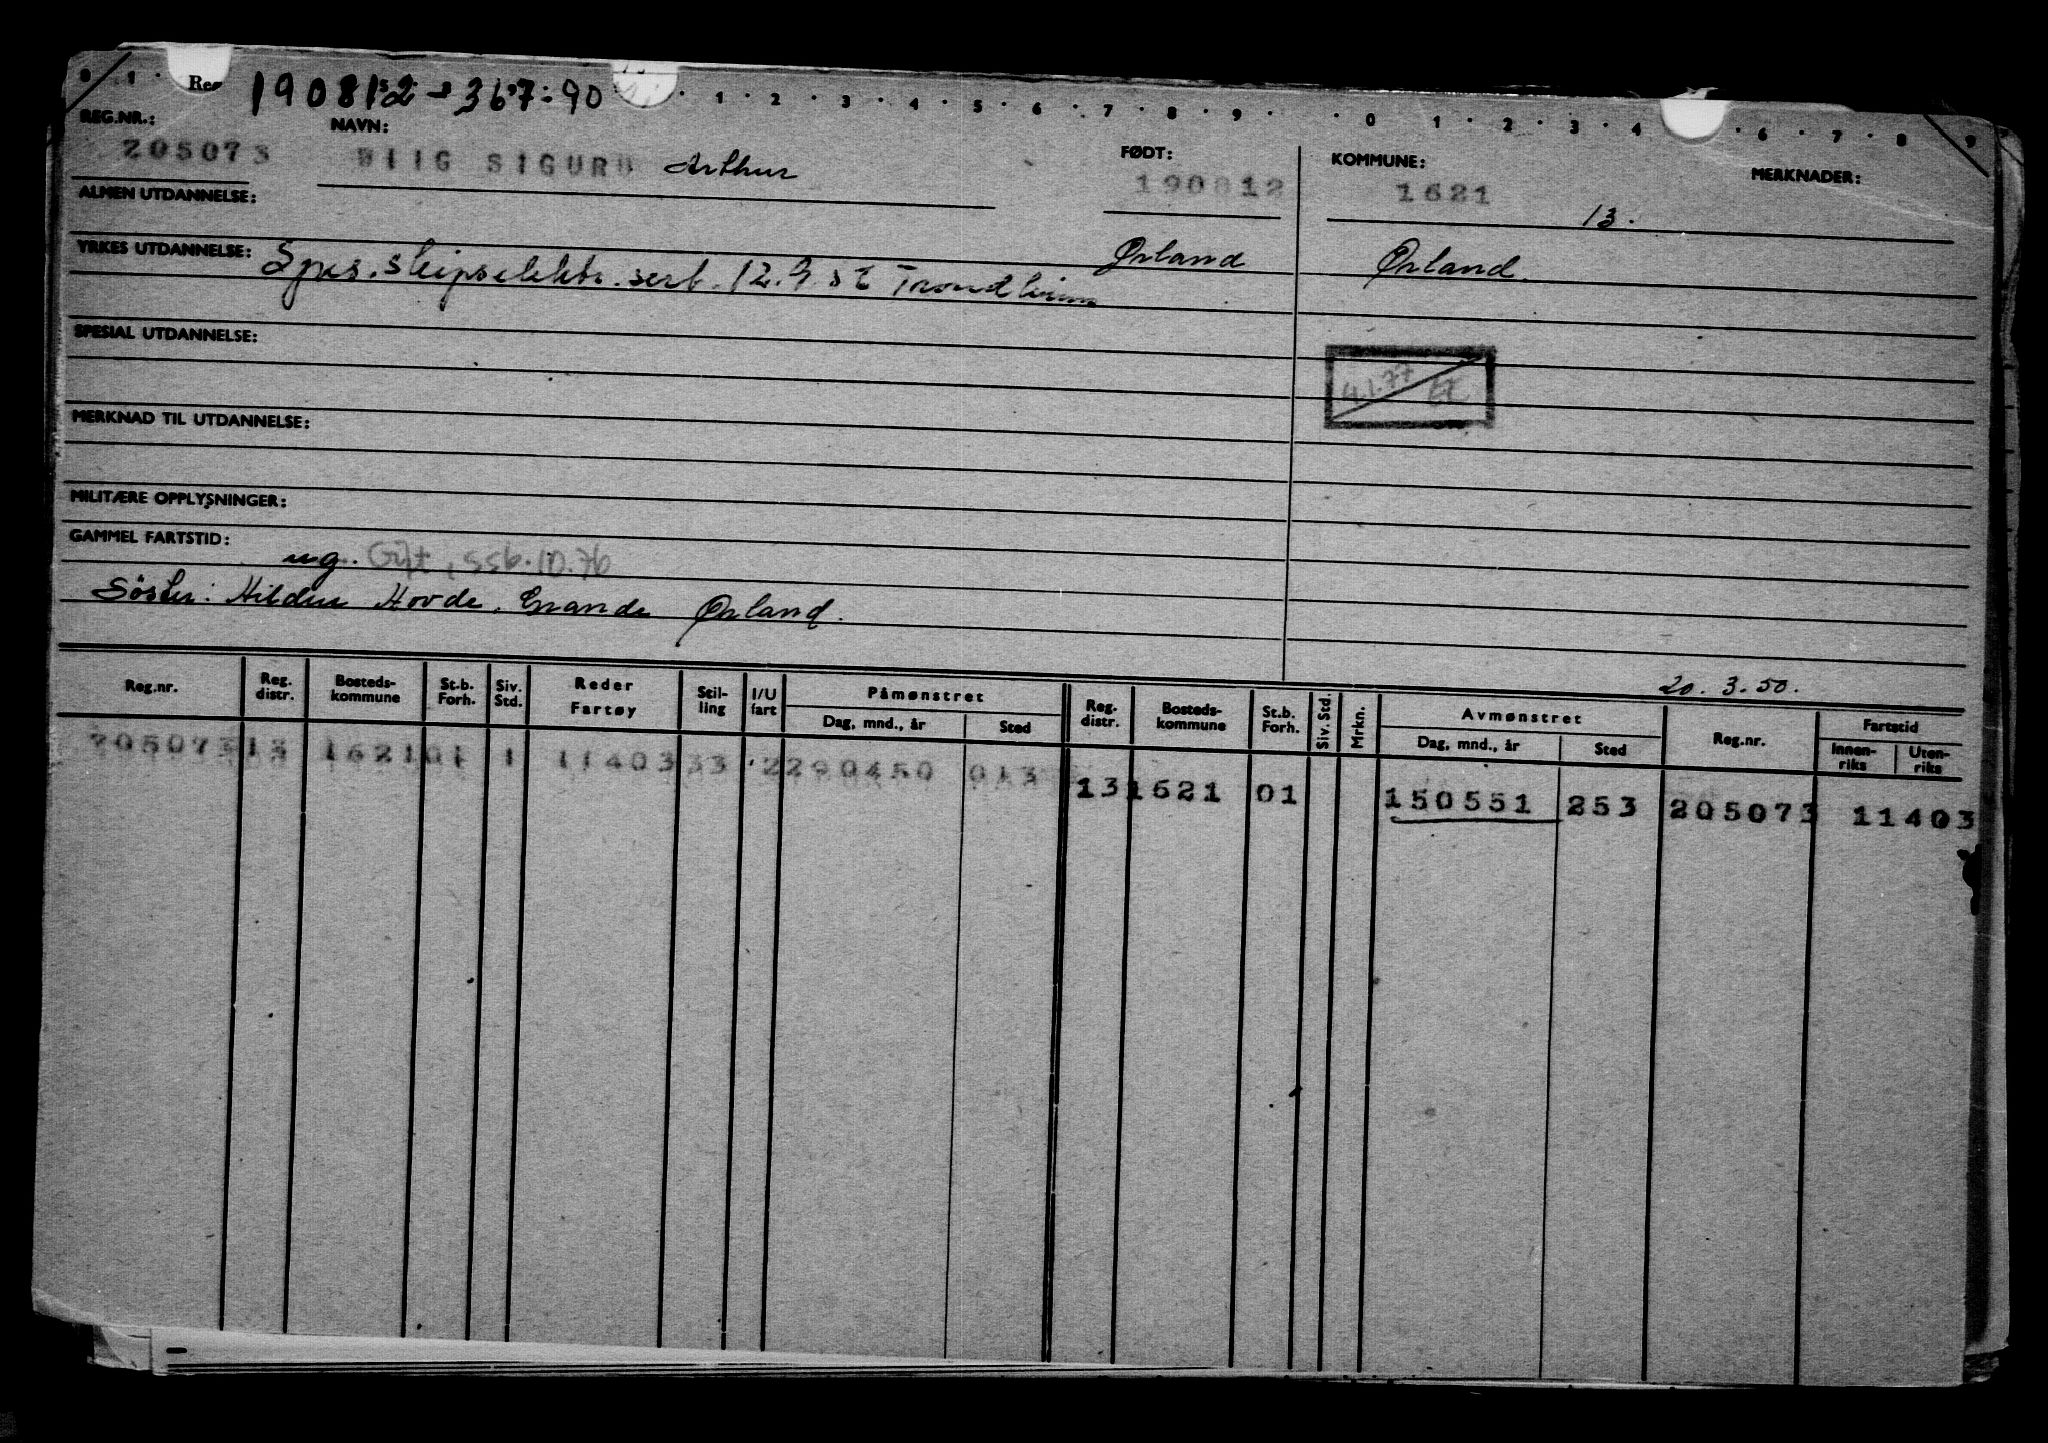 0 1 · Reg 190812-367:90 · 1 · 2 · 3 · 4 · 5 · 6 · 7 · 8 · 9 · · 0 · 1 · 2 · 3 · 4 · 6 · 7 · 8 9
REG.NR.: NAVN: FØDT: KOMMUNE: MERKNADER:
205073 SIGURD Arthur 190812 1621 13.
ALMEN UTDANNELSE:
Ørland Ørland.
YRKES UTDANNELSE: Spes. skipselektr. sert. 12.9.52 Trondheim
SPESIAL UTDANNELSE:
4.1.77
MERKNAD TIL UTDANNELSE:
MILITÆRE OPPLYSNINGER:
GAMMEL FARTSTID:
ug. Gift, ssb.10.76
Söster: Hildur Hovde. Grande Ørland.
20. 3. 50.
Reg.nr. Reg. distr. Bosteds-kommune St.b. Forh. Siv. Std. Reder Fartøy Stil-ling I/U fart Påmønstret Dag, mnd., år Sted Reg. distr. Bosteds-kommune St.b. Forh. Siv. Std. Mrkn. Avmønstret Dag, mnd., år Sted Reg.nr. Fartstid Innen-riks Uten-riks
205073 13 1621 01 1 11403 33 2 290450 013
13 1621 01 150551 253 205073 11403